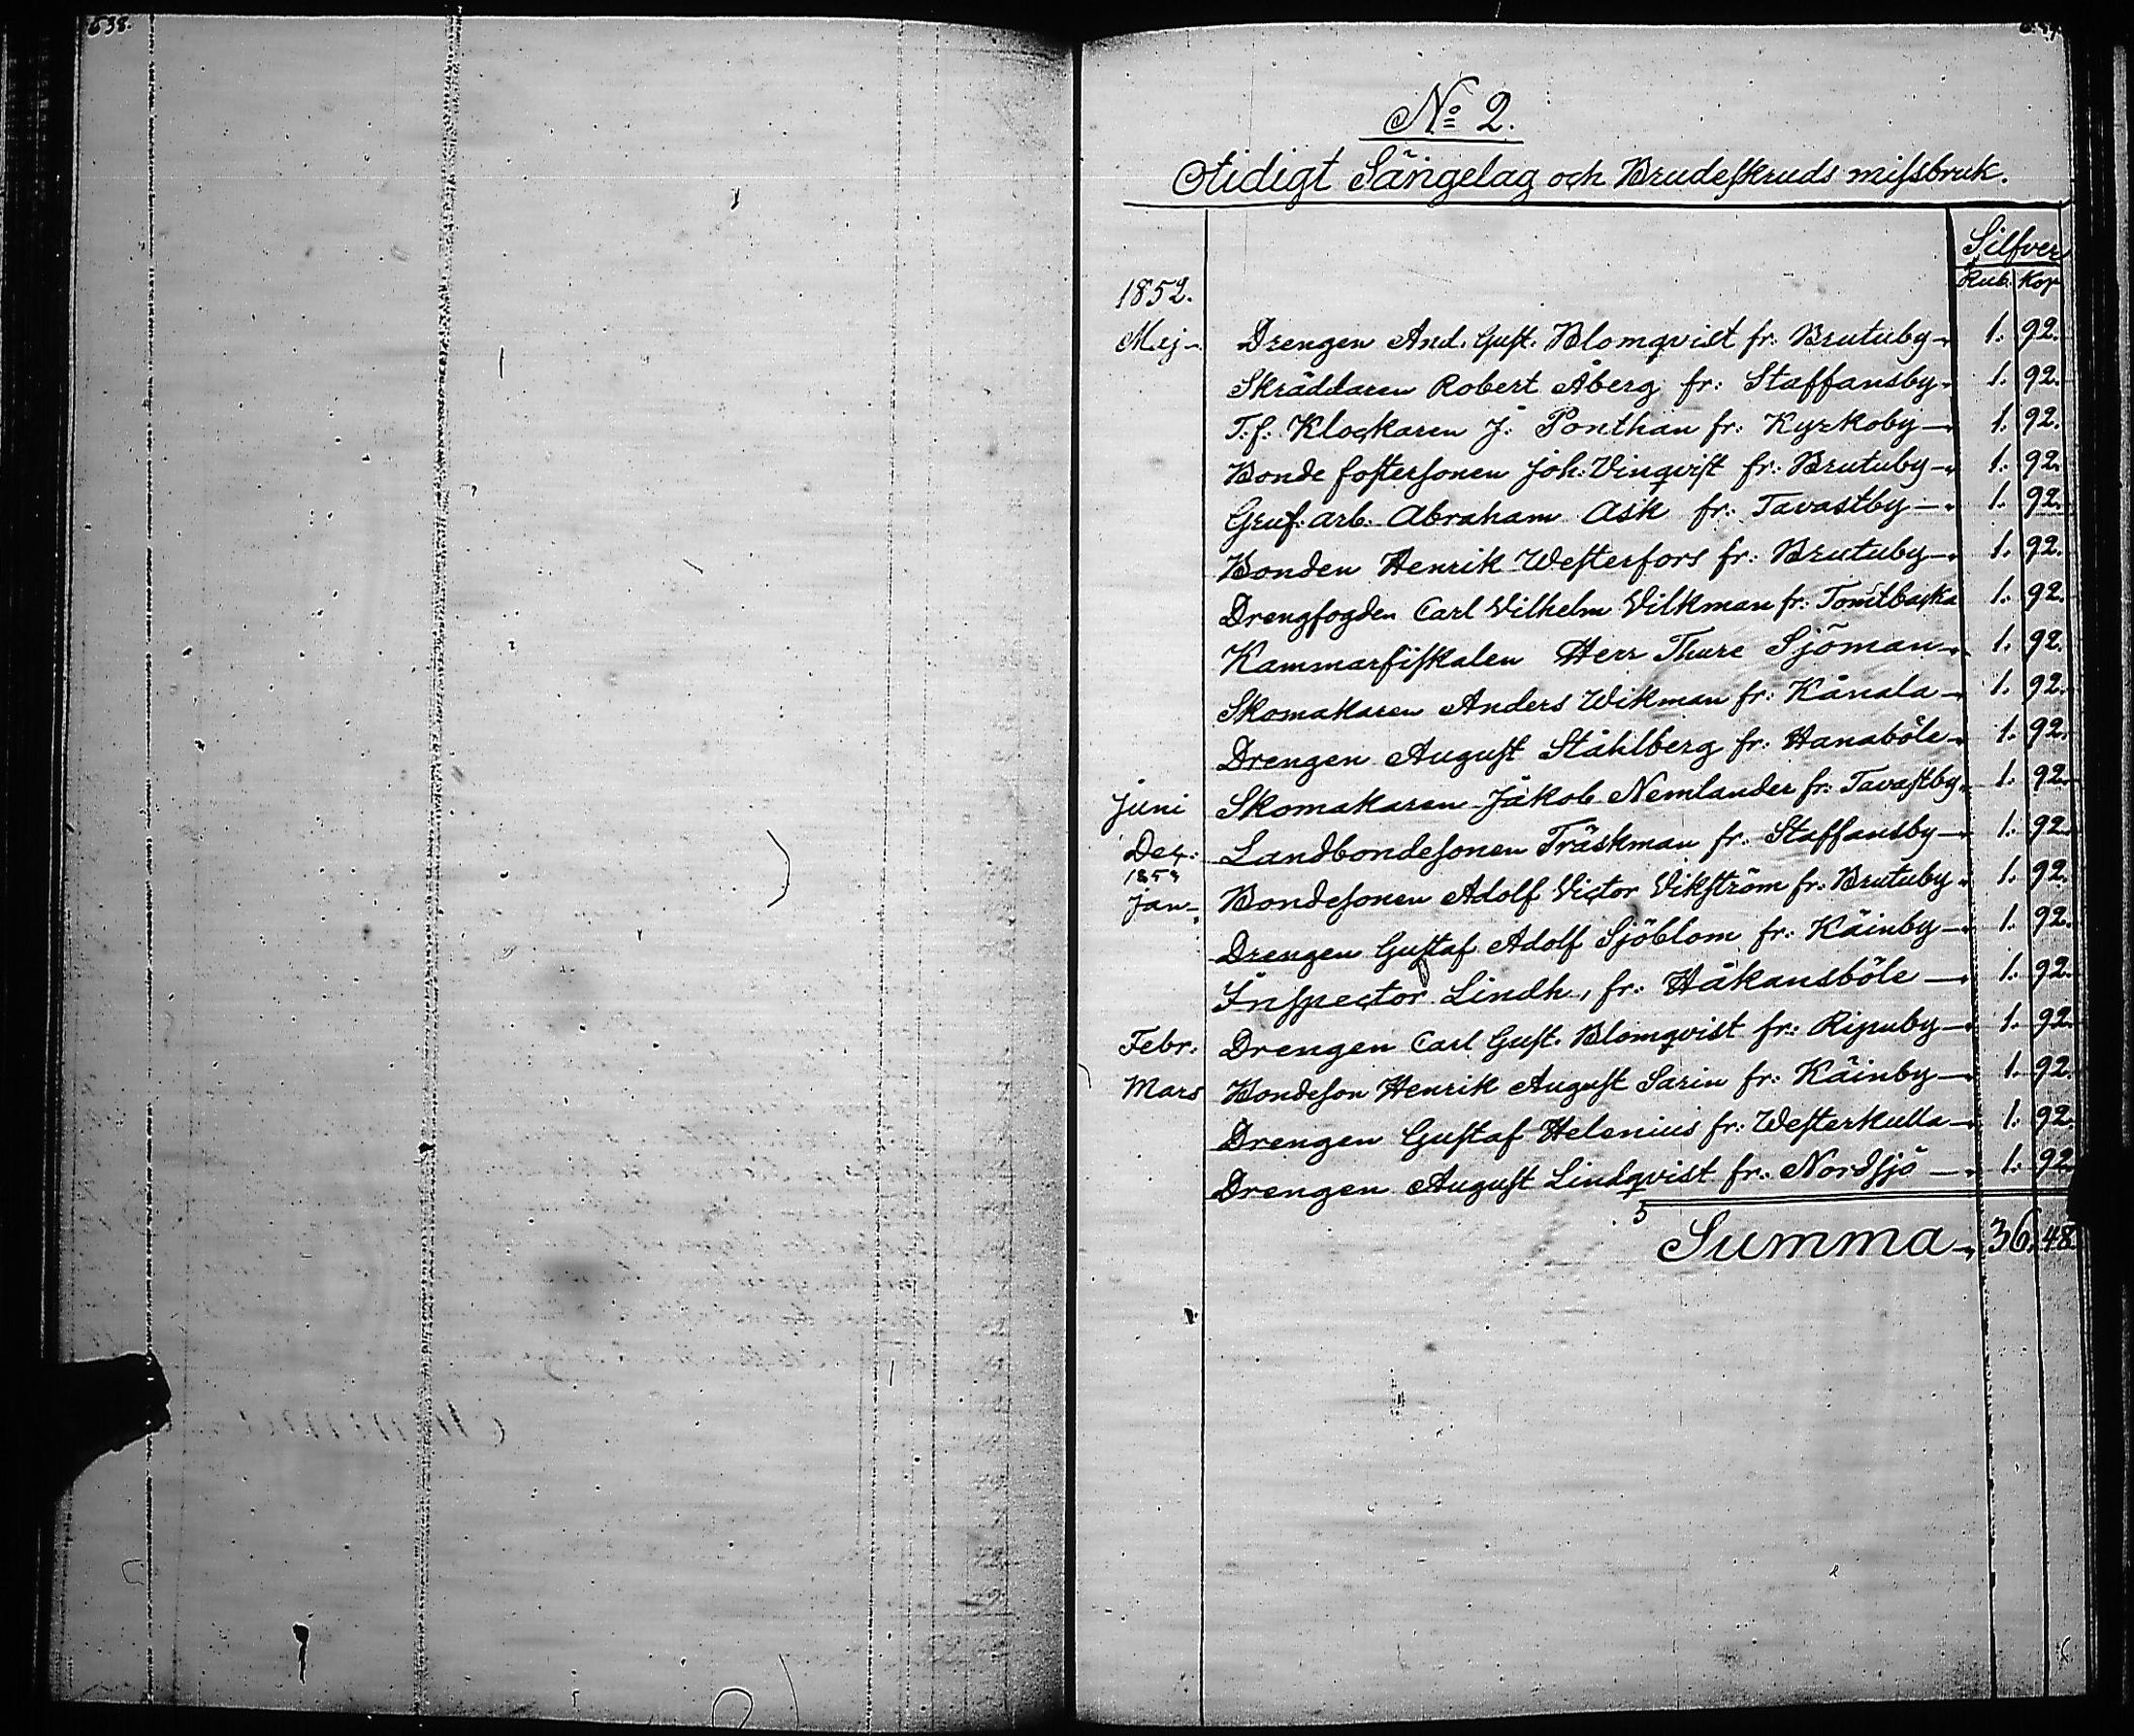 638.
No 2.
Otidigt Sängelag och Brudeskruds missbruk.
Silfver
Rub. Kop
1852.
Mej Drengen And. Gust. Blomqvist fr: Brutuby 1. 92.
Skräddaren Robert Åberg fr: Staffansby 1. 92.
T.f. Klockaren J: Ponthan fr: Kyrkoby 1. 92.
Bonde fostersonen Joh: Vinqvist fr: Brutuby 1. 92.
Gruf. arb. Abraham Ask fr: Tavastby 1. 92.
Bonden Henrik Westerfors fr: Brutuby 1. 92.
Drengfogden Carl Vilhelm Vilkman fr: Tomtbacka 1. 92.
Kammarfiskalen Herr Thure Sjöman 1. 92.
Skomakaren Anders Wikman fr: Kånala 1. 92.
Drengen August Ståhlberg fr: Hanaböle 1. 92.
Juni Skomakaren Jakob Nemlander fr: Tavastby 1. 92.
Dec: Landbondesonen Träskman fr: Staffansby 1. 92.
1853
Jan Bondesonen Adolf Victor Vikström fr: Brutuby 1. 92.
Drengen Gustaf Adolf Sjöblom fr: Käinby 1. 92.
Inspector Lindh, fr: Håkansböle 1. 92.
Febr: Drengen Carl Gust. Blomqvist fr: Ripuby 1. 92.
Mars Bondeson Henrik August Sarin fr: Käinby 1. 92.
Drengen Gustaf Helenius fr: Westerkulla 1. 92.
Drengen August Lindqvist fr: Nordsjö 1. 92.
Summa 36. 48.